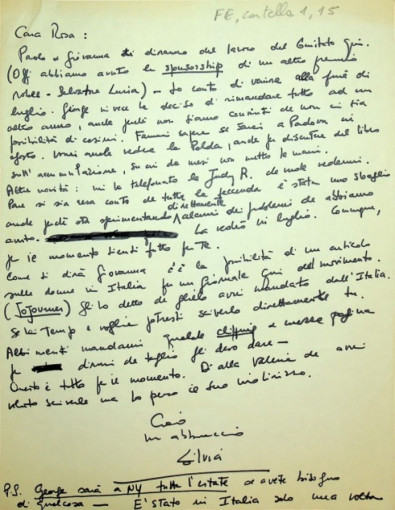 FE, cartella 1, 15
Cara Rosa:
Paolo e Giovanna ti diranno del lavoro del Comitato qui.
(Oggi abbiamo avuto la sponsorship di un altro premio
Nobel - Salvatore Luria) — Io conto di venire alla fine di
luglio. George invece ha deciso di rimandare tutto ad un
altro anno, anche perché non siamo convinti che non ci sia
possibilità di casini. Fammi sapere se sarai a Padova in
agosto. Vorrei anche vedere la Polda, anche per discutere del libro
sull'accumulazione, su cui da mesi non metto le mani.
Altre novità: mi ha telefonato la Judy R. che vuole vedermi.
Pare si sia resa conto che tutta la faccenda è stata uno sbaglio
anche perché sta sperimentando direttamente alcuni dei problemi che abbiamo
avuto. La vedrò in luglio. Comunque,
per il momento tienti tutto per te.
Come ti dirà Giovanna c'è la possibilità di un articolo
sulle donne in Italia per un giornale qui del movimento.
(Sojourner) Gli ho detto che glielo avrei mandato dall'Italia.
Se hai tempo e voglia potresti scriverlo direttamente tu.
Altrimenti mandami qualche clipping e mezza pagina
per dirmi che taglio gli devo dare —
Questo è tutto per il momento. Di' alla Valeria che avrei
voluto scriverle ma ho perso il suo indirizzo.
Ciao
un abbraccio
Silvia
P.S. George sarà a NY tutta l'estate se avete bisogno
di qualcosa — E' stato in Italia solo una volta